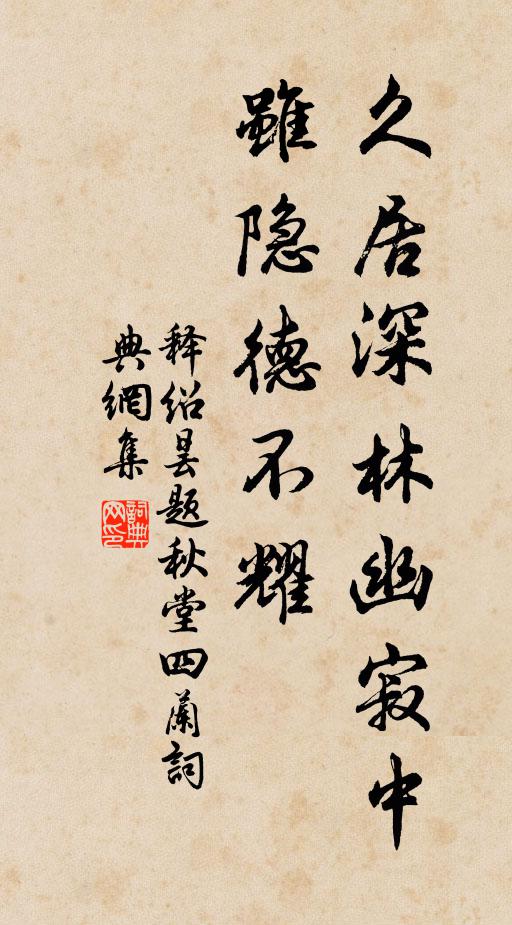 久居深林幽寂中
雖隐德不耀
释绍昙题秋堂四蘭詞
典網集
詞典網印